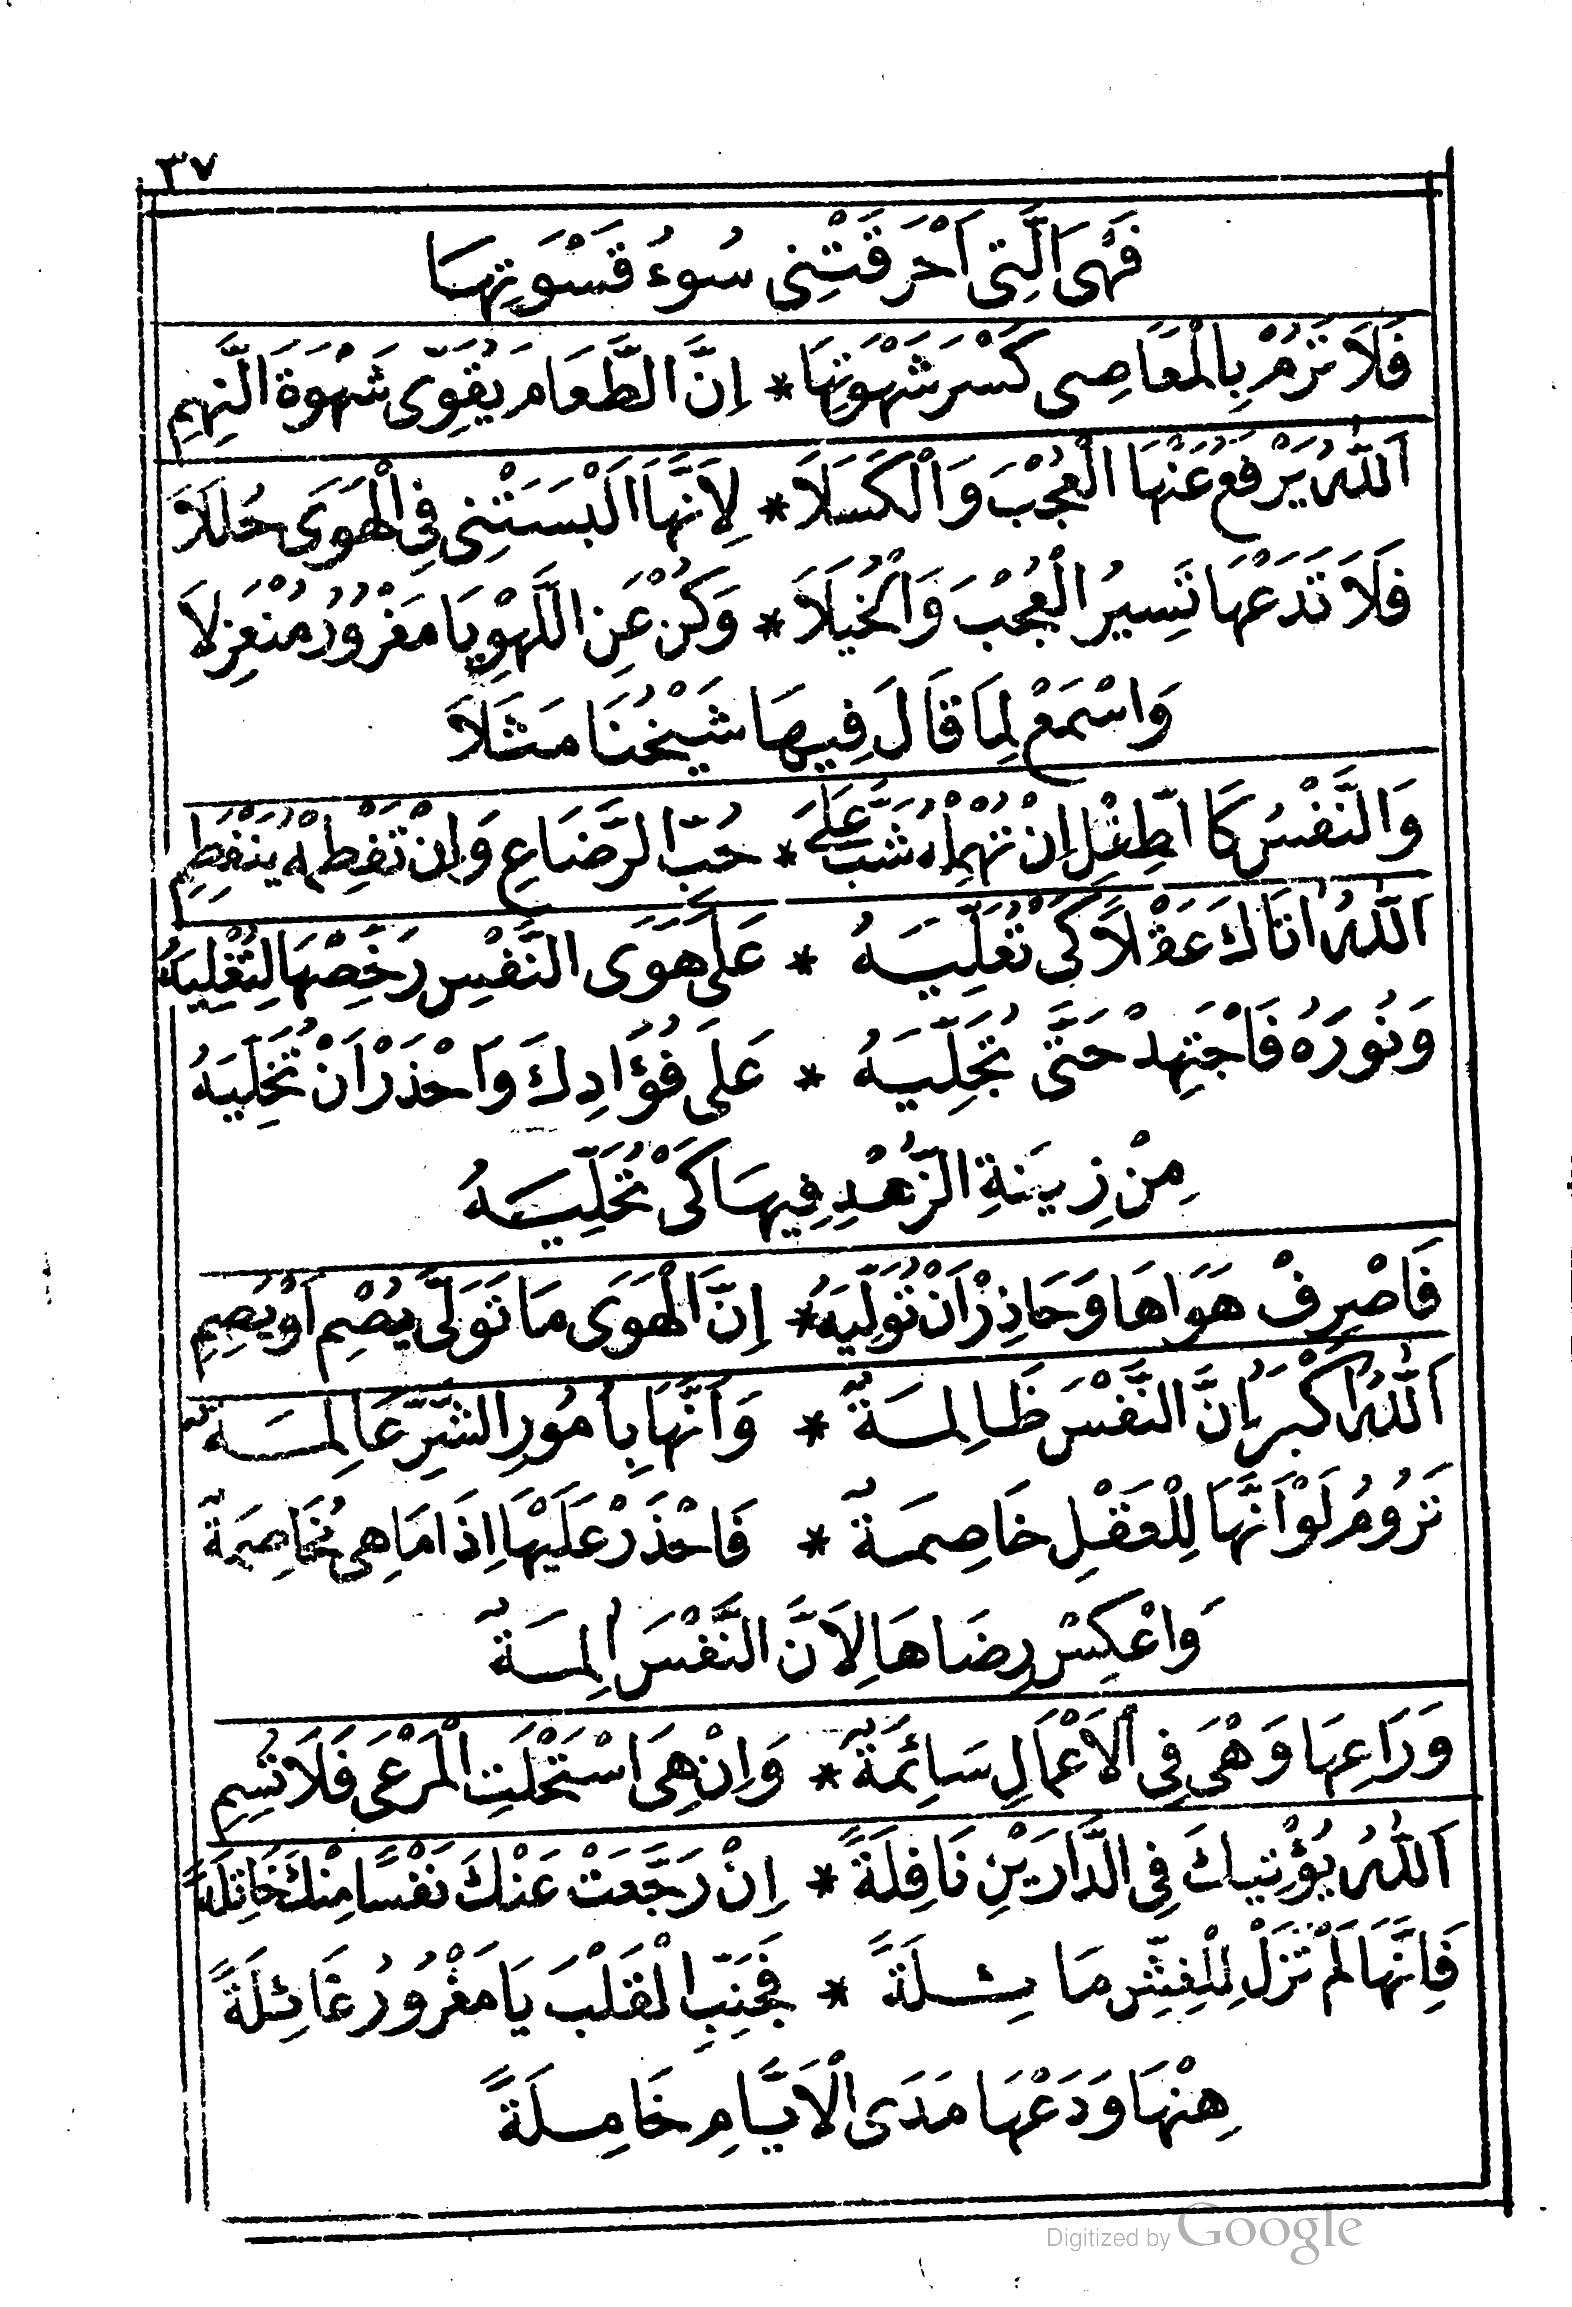 ٣٧
فَهْىَ الَّتِى اَحْرَقَتْنِى سُوءُ قَسْوَتِهَا
فَلَا تَرُمْ بِالْمَعَاصِى كَسْرَ شَهْوَتِهَا * اِنَّ الطَّعَامَ يُقَوِّى شَهْوَةَ النَّهِمِ
اَللّٰهُ يَرْفَعُ عَنْهَا الْعُجْبَ وَالْكَسَلَا * لِاَنَّهَا اَلْبَسَتْنِى فِى الْهَوَى حُلَلَا
فَلَا تَدَعْهَا تَسِيرُ الْعُجْبَ وَالْخُيَلَا * وَكُنْ عَنِ اللَّهْوِ يَا مَغْرُورُ مُنْعَزِلَا
وَاسْمَعْ لِمَا قَالَ فِيهَا شَيْخُنَا مَثَلَا
وَالنَّفْسُ كَا لطِّفْلِ اِنْ تُهْمِلْهُ شَبَّ عَلَى * حُبِّ الرَّضَاعِ وَاِنْ تَفْطِمْهُ يَنْفَطِمِ
اَللّٰهُ اٰتَاكَ عَقْلًا كَىْ تُعَلِّيَهُ * عَلَى هَوَى النَّفْسِ رَخِّصْهَا لِتُغْلِيَهُ
وَنُورَهُ فَاجْتَهِدْ حَتَّى تُجَلِّيَهُ * عَلَى فُؤَادِكَ وَاحْذَرْ اَنْ تُخَلِّيَهُ
مِنْ زِينَةِ الزُّهْدِ فِيهَا كَىْ تُحَلِّيَهُ
فَاصْرِفْ هَوَاهَا وَحَاذِرْ اَنْ تُوَلِّيَهُ * اِنَّ الْهَوَى مَا تَوَلَّى يُصْمِ اَوْ يَصِمِ
اَللّٰهُ اَكْبَرُ اِنَّ النَّفْسَ ظَالِمَةٌ * وَاَنَّهَا بِاُمُورِ الشَّرِّ عَالِمَةٌ
تَرُومُ لَوْ اَنَّهَا لِلْعَقْلِ خَاصِمَةٌ * فَاحْذَرْ عَلَيْهَا اِذَا مَا هِى مُخَاصِمَةٌ
وَاعْكِسْ رِضَاهَا لِاَنَّ النَّفْسَ اٰلِمَةٌ
وَرَاعِهَا وَهْىَ فِى الْاَعْمَالِ سَائِمَةٌ * وَاِنْ هِىَ اسْتَحْلَتِ الْمَرْعَى فَلَا تُسِمِ
اَللّٰهُ يُؤْتِيكَ فِى الدَّارَيْنِ نَافِلَةً * اِنْ رَجَّعَتْ عَنْكَ نَفْسًا مِنْكَ خَاتِلَةً
فَاِنَّهَا لَمْ تَزَلْ لِلْغِشِّ مَائِلَةً * فَجَنِّبِ الْقَلْبَ يَا مَغْرُورُ غَائِلَةً
مِنْهَا وَدَعْهَا مَدَى الْاَيَّامِ خَامِلَةً
Digitized by Google